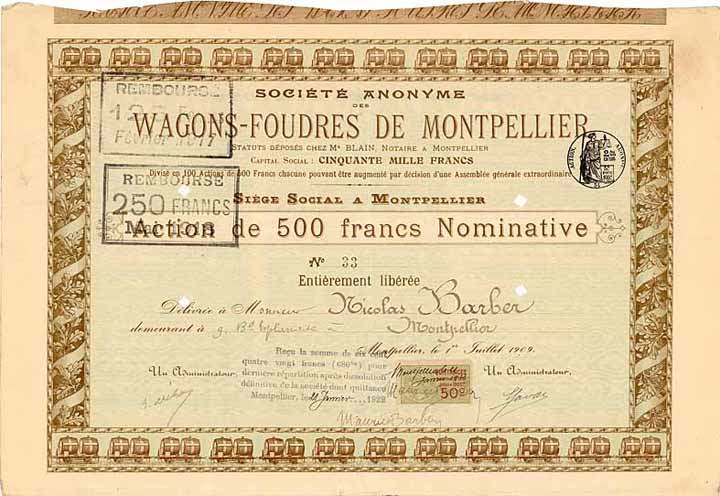 REMBOURSÉ
Février 1917
REMBOURSÉ
250 FRANCS
Mai 1918
SOCIÉTÉ ANONYME
DES
WAGONS-FOUDRES DE MONTPELLIER
STATUTS DÉPOSÉS CHEZ Me BLAIN, NOTAIRE A MONTPELLIER
CAPITAL SOCIAL : CINQUANTE MILLE FRANCS
Divisé en 100 Actions de 500 Francs chacune pouvant être augmenté par décision d'une Assemblée générale extraordinaire
SIÈGE SOCIAL A MONTPELLIER
Action de 500 francs Nominative
No 33
Entièrement libérée
Délivrée à Monsieur Nicolas Barber
demeurant à 9, Bd Esplanade à Montpellier
Montpellier, le 1er Juillet 1909.
Un Administrateur,
Un Administrateur,
Reçu la somme de six cent
quatre vingt francs (680frs) pour
dernière répartition après dissolution
définitive de la société dont quittance
Montpellier, le 21 Janvier 1922
50c
Maurice Barber